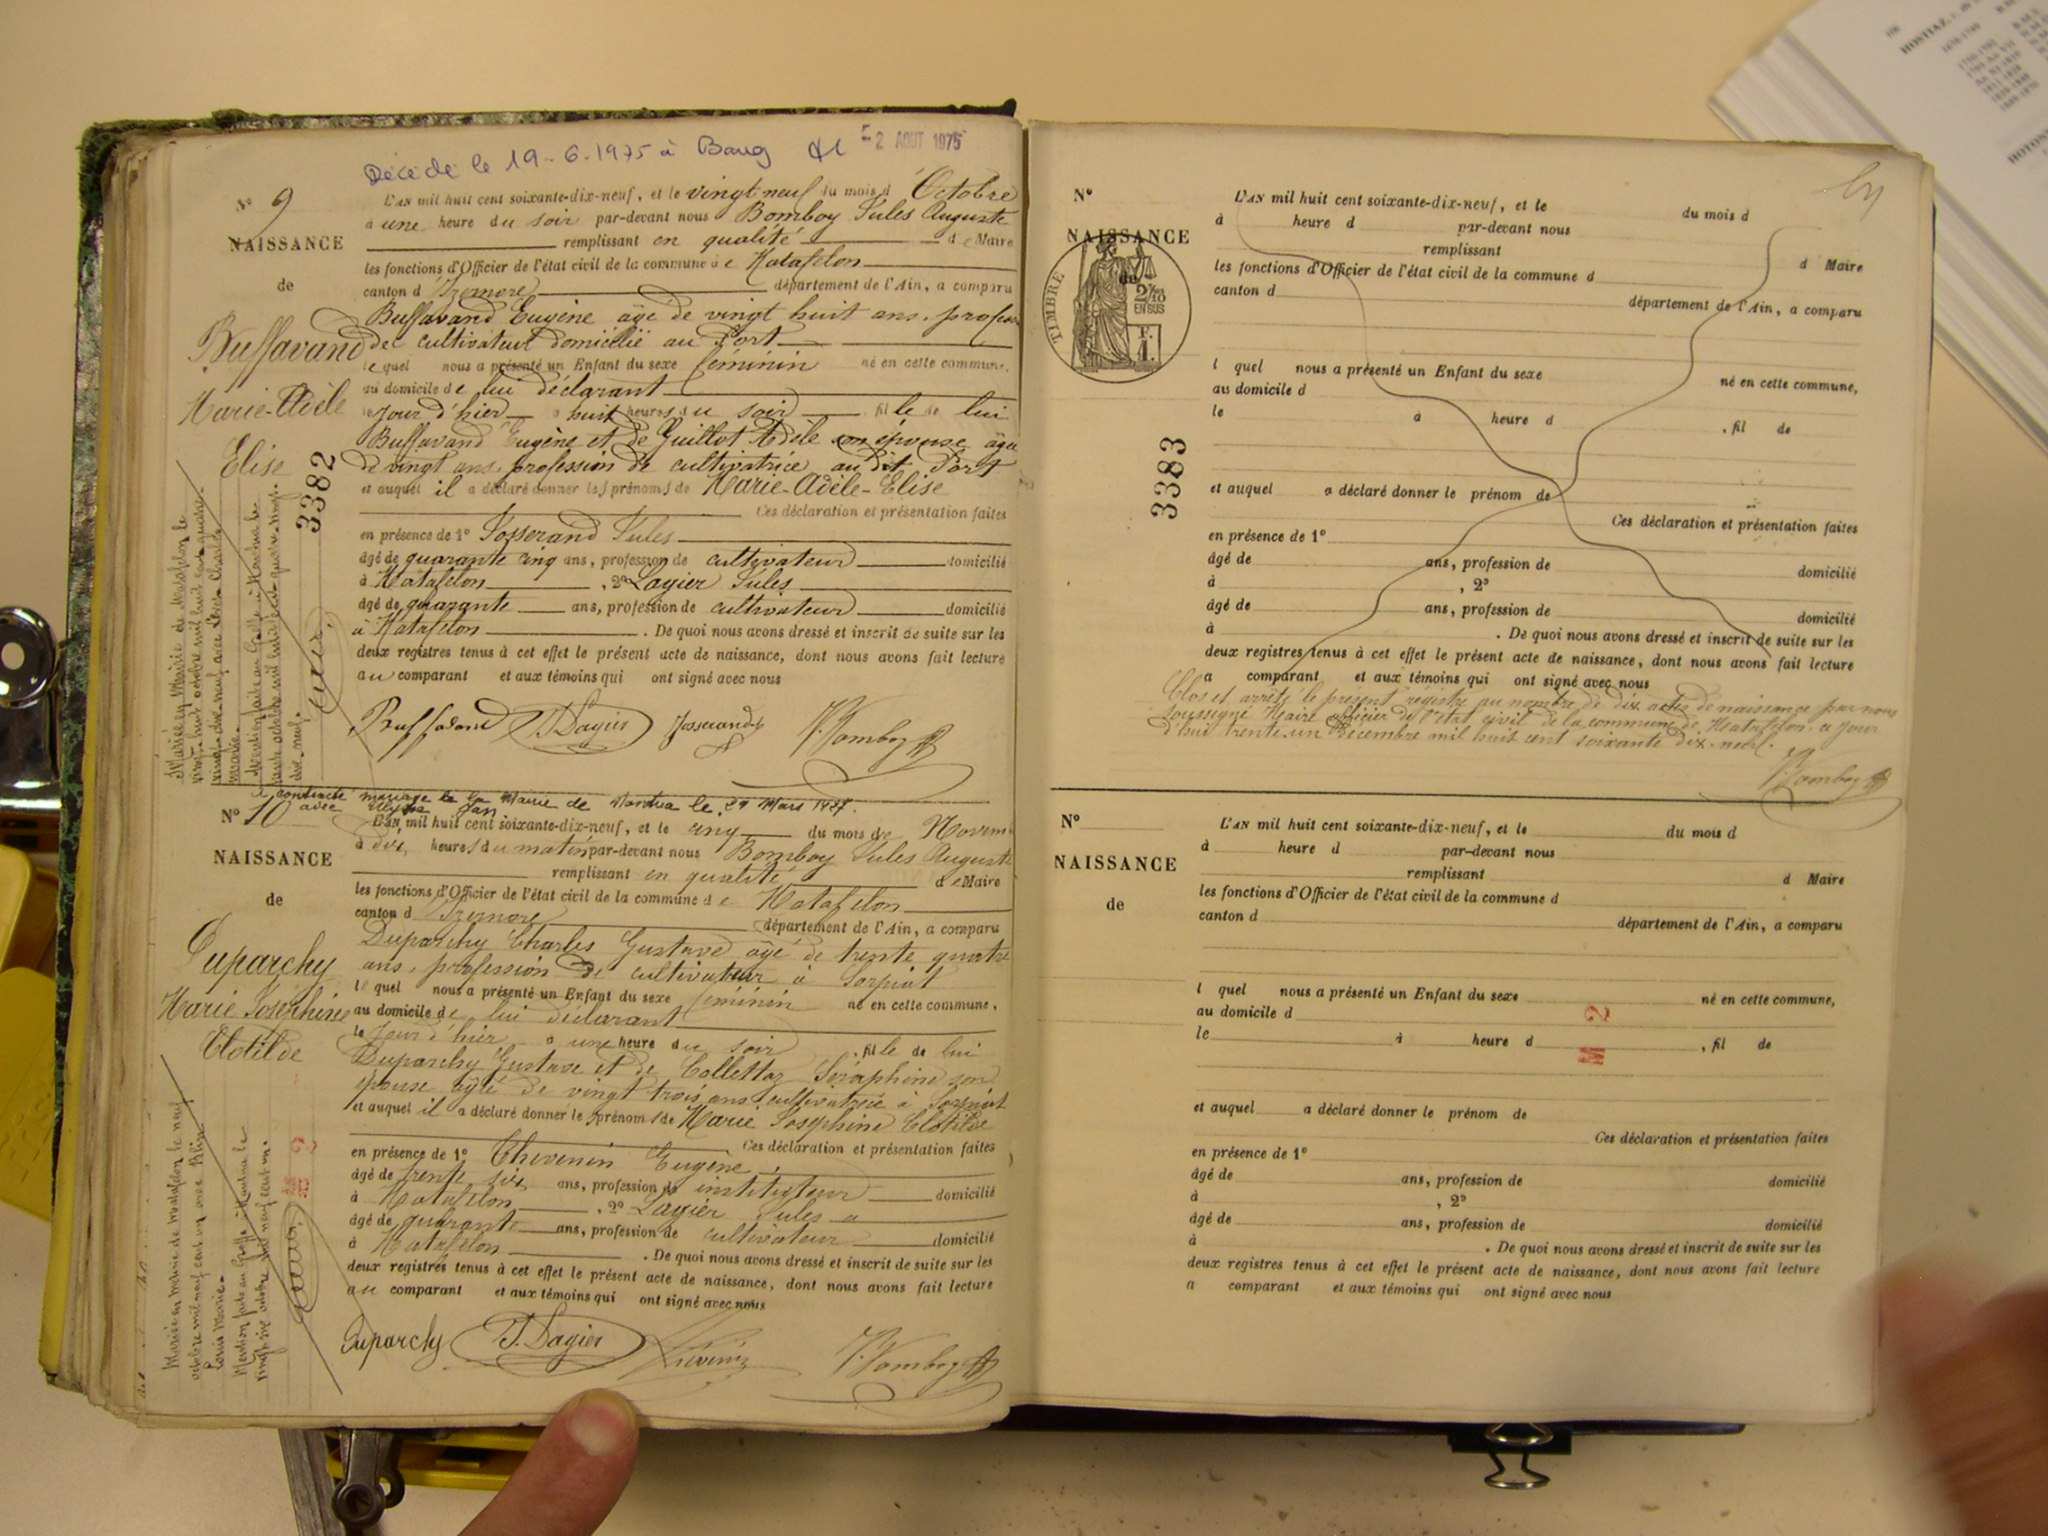 Décédé le 19-6-1975 à Bourg
2 AOUT 1975
N° 9
NAISSANCE
de
Buffavand
Marie-Adèle
Elise
3382
L'AN mil huit cent soixante-dix-neuf, et le vingt neuf du mois d'Octobre
à une heure du soir par-devant nous Bomboy Jules Auguste
remplissant en qualité de Maire
les fonctions d'Officier de l'état civil de la commune de Matafelon
canton d'Izernore département de l'Ain, a comparu
Buffavand Eugène âgé de vingt huit ans, profession
de cultivateur domicilié au Port
lequel nous a présenté un Enfant du sexe féminin né en cette commune,
au domicile de lui déclarant
le jour d'hier à huit heures du soir fille de lui
Buffavand Eugène et de Guillot Adèle son épouse âgée
de vingt ans, profession de cultivatrice au dit Port
et auquel il a déclaré donner les prénoms de Marie-Adèle-Elise
Ces déclaration et présentation faites
en présence de 1° Josserand Jules
âgé de quarante cinq ans, profession de cultivateur domicilié
à Matafelon, 2° Lagier Jules
âgé de quarante ans, profession de cultivateur domicilié
à Matafelon. De quoi nous avons dressé et inscrit de suite sur les
deux registres tenus à cet effet le présent acte de naissance, dont nous avons fait lecture
au comparant et aux témoins qui ont signé avec nous
Mariée en Mairie de Matafelon le
vingt huit octobre mil huit cent quatre-
vingt-dix-neuf avec
Mention faite au Greffe à Nantua le
trente octobre mil huit cent quatre-vingt-
dix-neuf.
Buffavand J. Lagier Josserand J. Bomboy
a contracté mariage à la Mairie de Nantua le 29 Mars 1927
avec
N° 10
NAISSANCE
de
Duparchy
Marie Joséphine
Clotilde
L'AN mil huit cent soixante-dix-neuf, et le cinq du mois de Novem
à dix heures du matin par-devant nous Bomboy Jules Auguste
remplissant en qualité de Maire
les fonctions d'Officier de l'état civil de la commune de Matafelon
canton d'Izernore département de l'Ain, a comparu
Duparchy Charles Gustave âgé de trente quatre
ans, profession de cultivateur à Sorpiat
lequel nous a présenté un Enfant du sexe féminin né en cette commune,
au domicile de lui déclarant
le jour d'hier à une heure du soir, fille de lui
Duparchy Gustave et de Collettaz Séraphine son
épouse âgée de vingt trois ans cultivatrice à Sorpiat
et auquel il a déclaré donner les prénoms de Marie Joséphine Clotilde
Ces déclaration et présentation faites
en présence de 1° Thevenin Eugène
âgé de trente six ans, profession de instituteur domicilié
à Matafelon, 2° Lagier Jules
âgé de quarante ans, profession de cultivateur domicilié
à Matafelon. De quoi nous avons dressé et inscrit de suite sur les
deux registres tenus à cet effet le présent acte de naissance, dont nous avons fait lecture
au comparant et aux témoins qui ont signé avec nous
Mariée en mairie de Matafelon le neuf
octobre mil neuf cent un avec Blin
Louis Marie.
Mention faite au Greffe à Nantua le
vingt six octobre mil neuf cent un.
M 2
Duparchy J. Lagier Thevenin J. Bomboy
N°
NAISSANCE
de
TIMBRE
2/10
EN SUS
F.
1.
3383
L'AN mil huit cent soixante-dix-neuf, et le du mois d
à heure d par-devant nous
remplissant d Maire
les fonctions d'Officier de l'état civil de la commune d
canton d département de l'Ain, a comparu
l quel nous a présenté un Enfant du sexe né en cette commune,
au domicile d
le à heure d , fil de
et auquel a déclaré donner le prénom de
Ces déclaration et présentation faites
en présence de 1°
âgé de ans, profession de domicilié
à , 2°
âgé de ans, profession de domicilié
à . De quoi nous avons dressé et inscrit de suite sur les
deux registres tenus à cet effet le présent acte de naissance, dont nous avons fait lecture
a comparant et aux témoins qui ont signé avec nous
Clos et arrêté le présent registre au nombre de dix actes de naissance par nous
soussigné Maire officier de l'état civil de la commune de Matafelon, ce jour
d'hui trente-un Décembre mil huit cent soixante dix-neuf.
J. Bomboy
N°
NAISSANCE
de
L'AN mil huit cent soixante-dix-neuf, et le du mois d
à heure d par-devant nous
remplissant d Maire
les fonctions d'Officier de l'état civil de la commune d
canton d département de l'Ain, a comparu
l quel nous a présenté un Enfant du sexe né en cette commune,
au domicile d
le à heure d , fil de
M 2
et auquel a déclaré donner le prénom de
Ces déclaration et présentation faites
en présence de 1°
âgé de ans, profession de domicilié
à , 2°
âgé de ans, profession de domicilié
à . De quoi nous avons dressé et inscrit de suite sur les
deux registres tenus à cet effet le présent acte de naissance, dont nous avons fait lecture
a comparant et aux témoins qui ont signé avec nous
HOSTIAZ